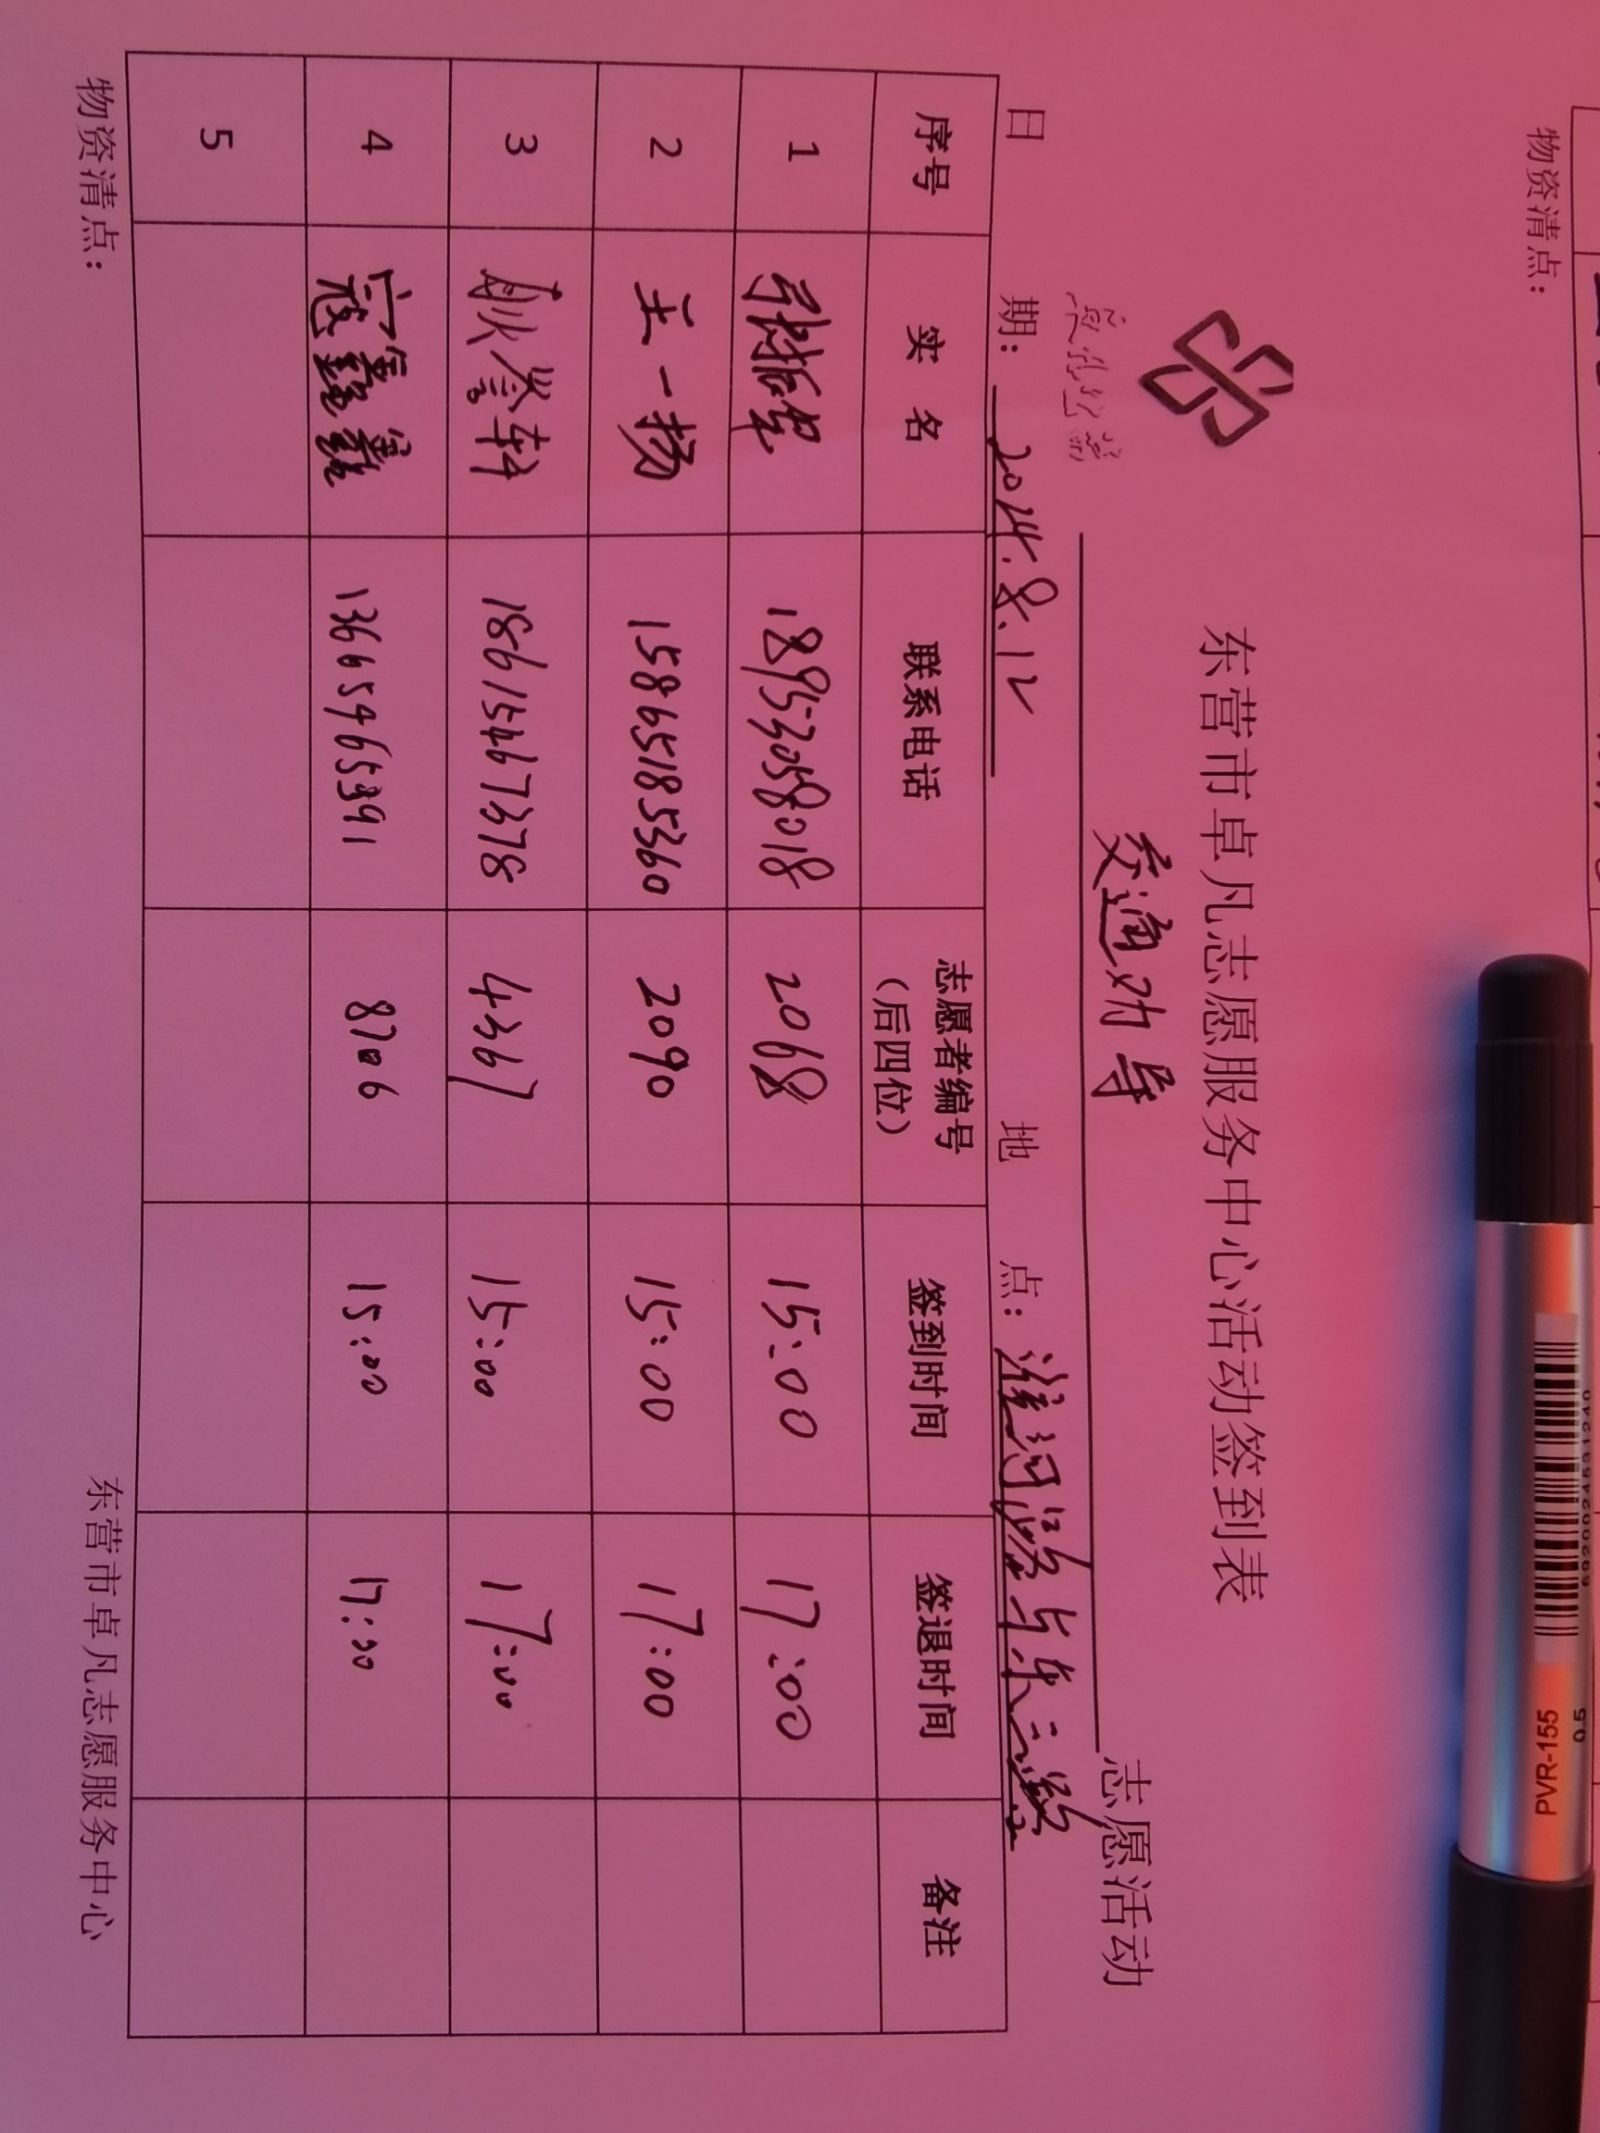 东营市卓凡志愿服务中心活动签到表
交通劝导 志愿活动
日 期： 2024.8.12 地 点： 淮河路与东三路
序号 实 名 联系电话 志愿者编号（后四位） 签到时间 签退时间 备注
1 18953058018 2068 15:00 17:00
2 王一扬 15865185360 2090 15:00 17:00
3 耿誉轩 18615467378 4367 15:00 17:00
4 寇鑫鑫 13665465391 8706 15:00 17:00
5
物资清点： 东营市卓凡志愿服务中心
物资清点：
PVR-155
0.5